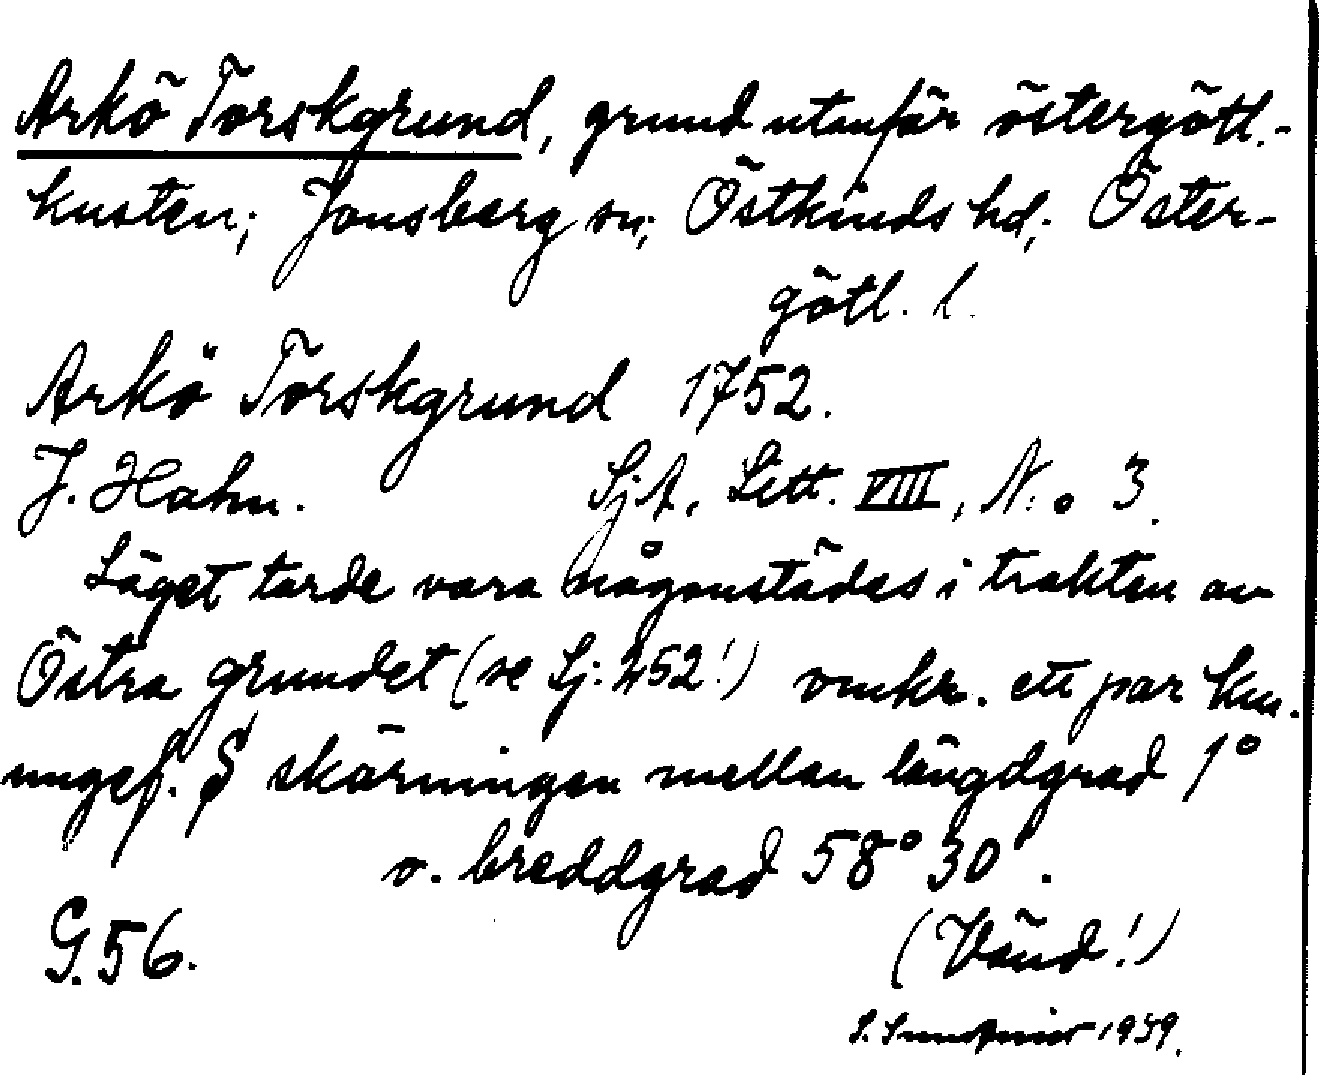 Arkö Torskgrund, grund utanför östergötl.-
kusten; Jonsberg sn; Östkinds hd; Öster-
götl. l.
Arkö Torskgrund 1752.
J. Hahn. SjA, Litt. VIII, N:o 3.
Läget torde vara någonstädes i trakten av
Östra grundet (se Sj: 252!) omkr. ett par km.
ungef. S skärningen mellan längdgrad 1°
o. breddgrad 58° 30'.
G. 56. (Vänd!)
S. 1939.